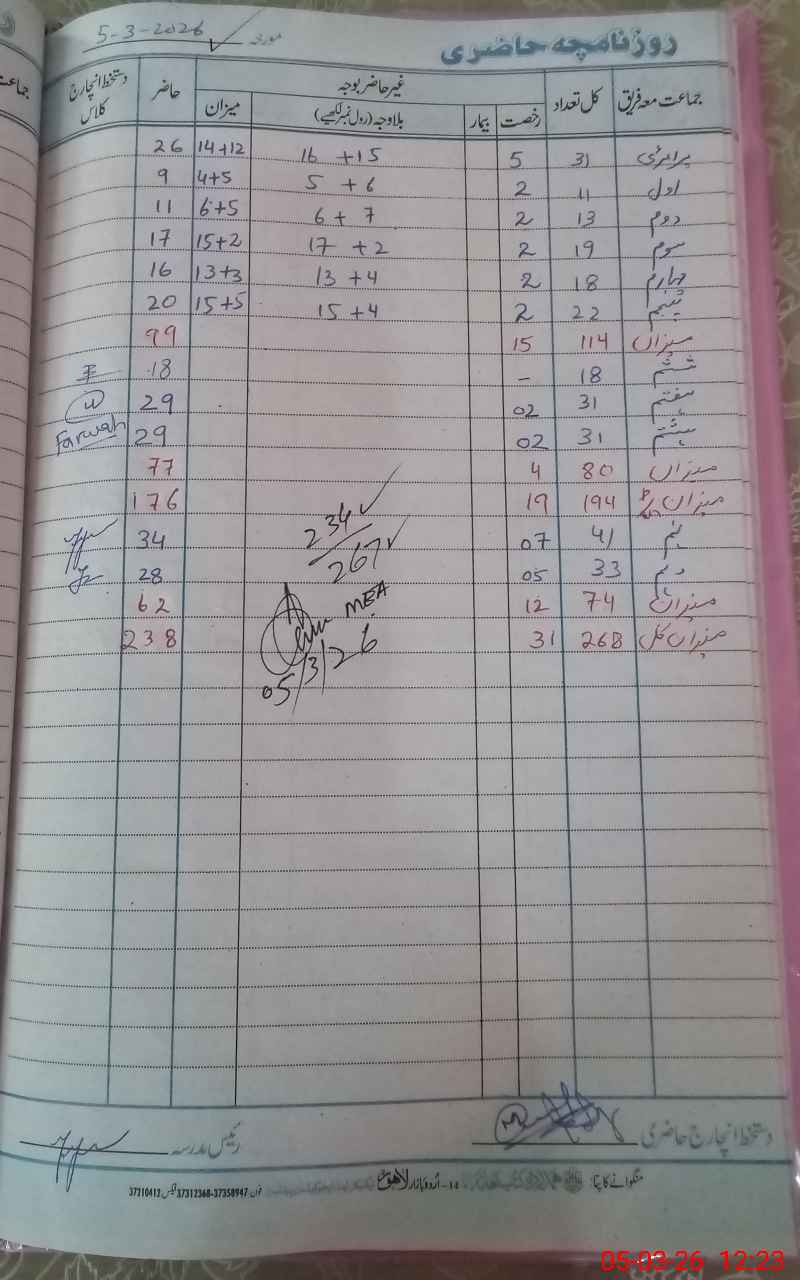 روزنامچہ حاضری
مورخہ 5-3-2026
جماعت معہ فریق کل تعداد غیر حاضر بوجہ حاضر دستخط انچارج کلاس
رخصت بیمار بلاوجہ (رول نمبر لکھیے) میزان
پرائمری 31 5 16 + 15 14+12 26
اول 11 2 5 + 6 4+5 9
دوم 13 2 6 + 7 6+5 11
سوم 19 2 17 + 2 15+2 17
چہارم 18 2 13 + 4 13+3 16
پنجم 22 2 15 + 4 15+5 20
میزان 114 15 99
ششم 18 - 18
ہفتم 31 02 29
ہشتم 31 02 29 Farwah
میزان 80 4 77
میزان 194 19 176
نہم 41 07 34
دہم 33 05 28
میزان 74 12 62
میزان کل 268 31 238
234
267
MEA
05/3/26
دستخط انچارج حاضری
رئیس مدرسہ
منگوانے کا پتا:
۱۵- اردو بازار لاہور
فون: 37358947-37312368 فیکس: 37210412
05-03-26 12:23